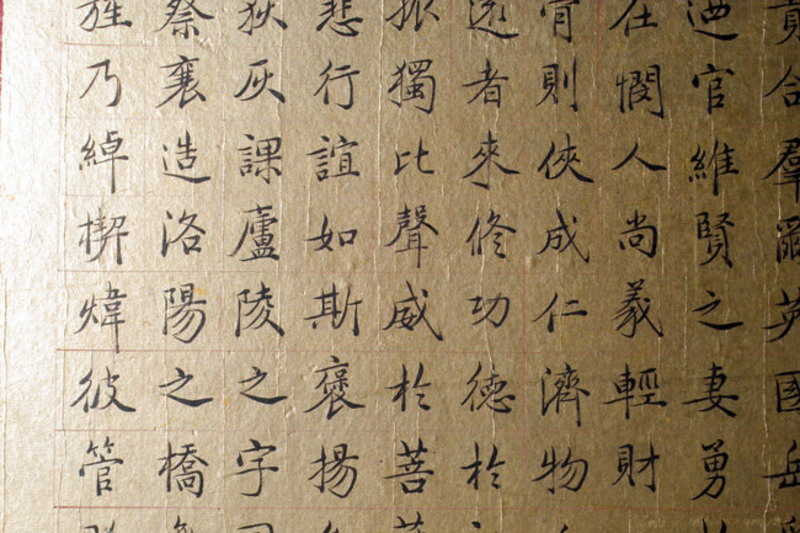 羣爾英國岳
迺官維賢之妻勇
在憫人尚義輕財
則俠成仁濟物
遠者來修功德於
振獨比聲威於菩
悲行誼如斯褒揚
荻灰課廬陵之字
蔡襄造洛陽之橋
旌乃綽楔煒彼管